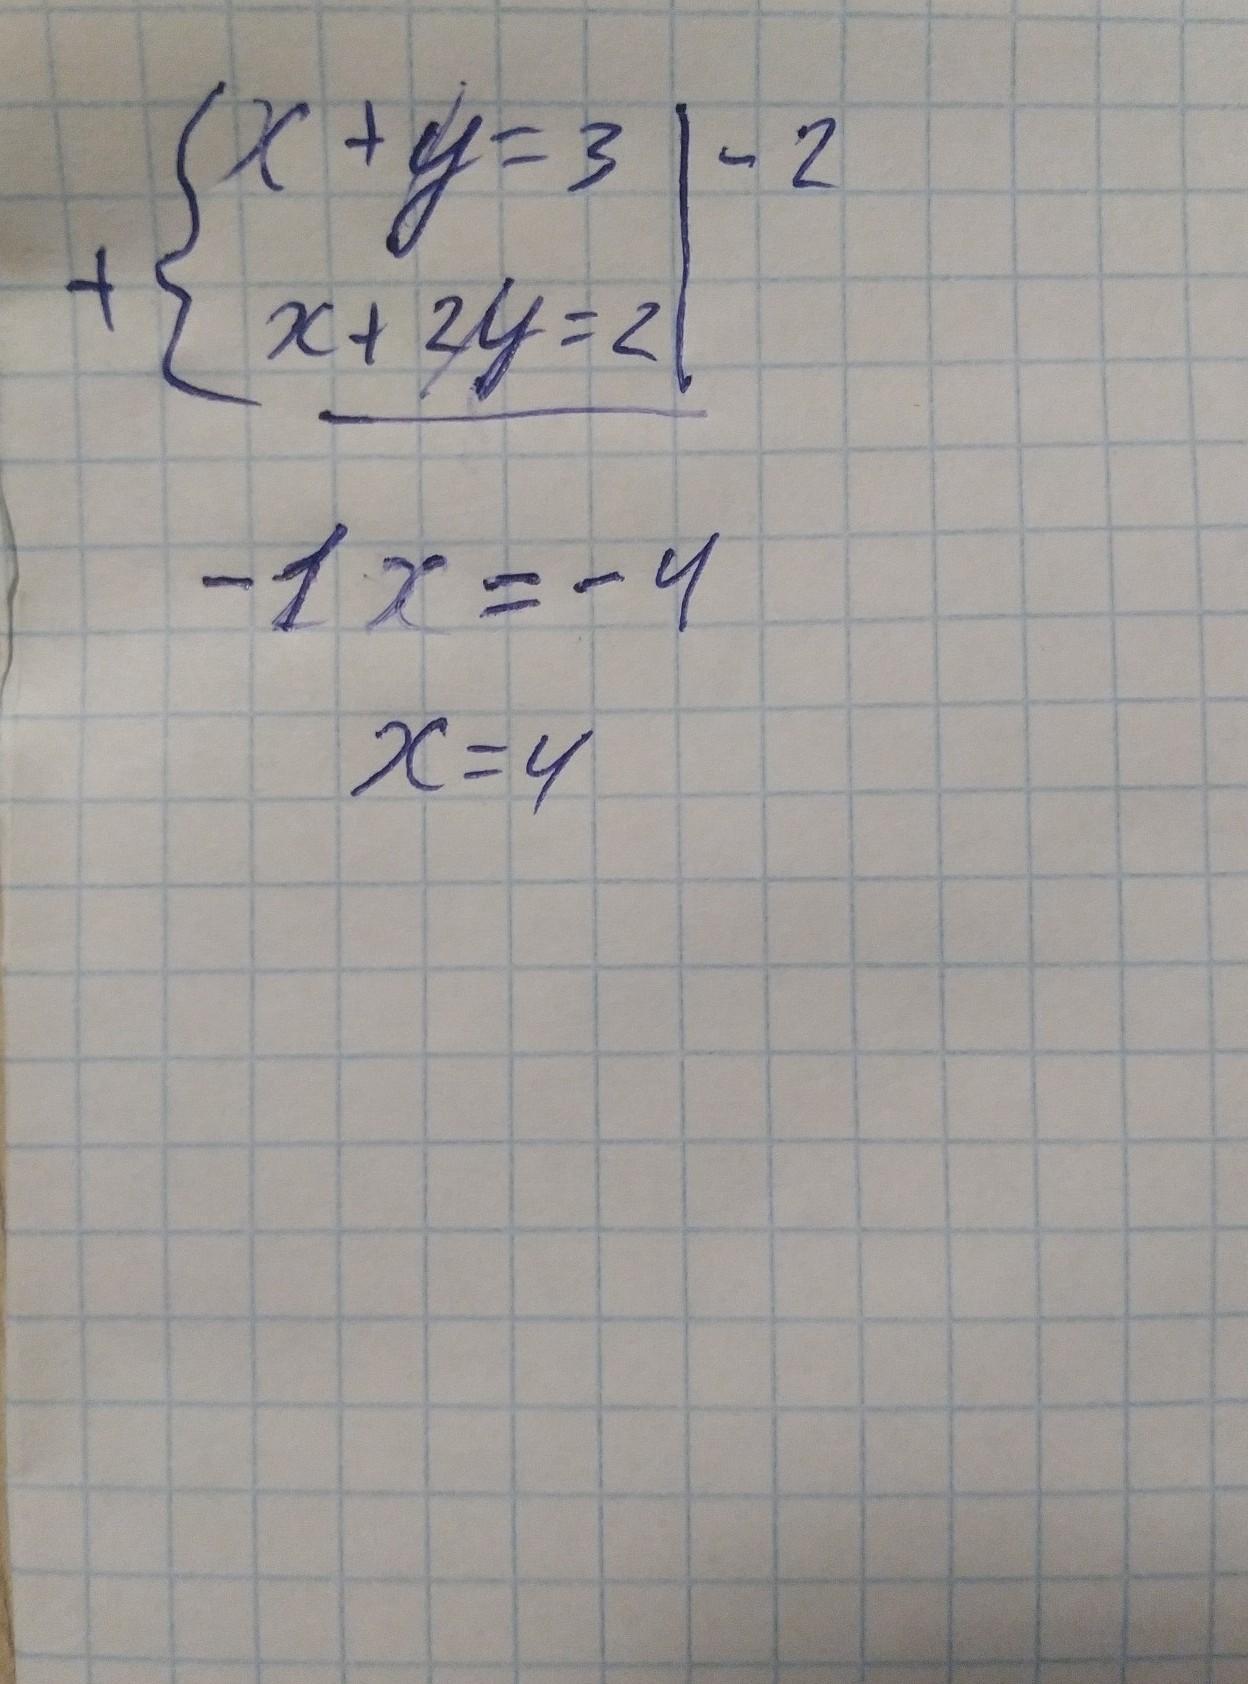 x + y = 3 | - 2
+ { x + 2y = 2
-1x = -4
x = 4